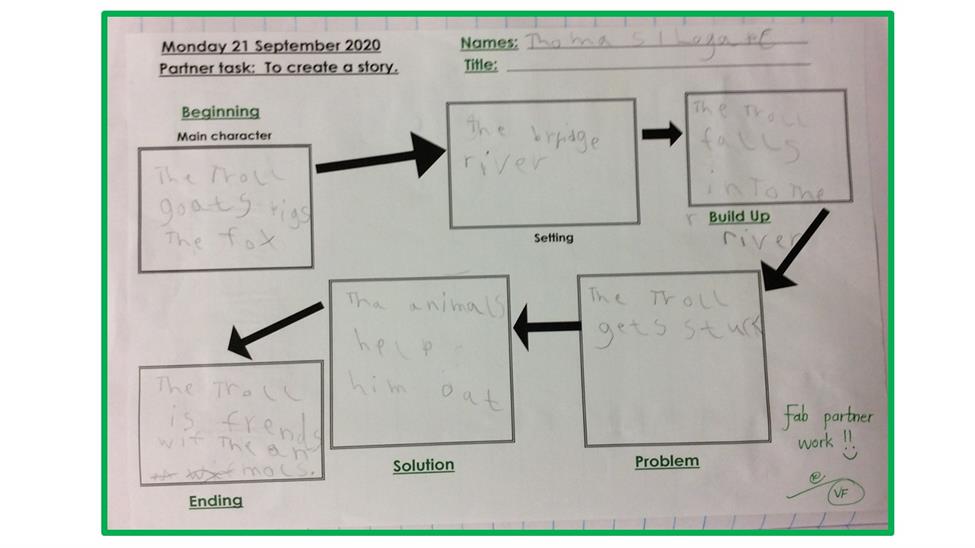 Monday 21 September 2020
Names:
Partner task: To create a story.
Title:
Beginning
Main character
The Troll
goats rigs
The fox
the bridge
river
Setting
The Troll
falls
inTo The
r
river
Build Up
The Troll
gets sturk
Problem
Tha animals
help
him oat
Solution
The Troll
is frends
wit The an
mals.
Ending
Fab partner
work !!
VF